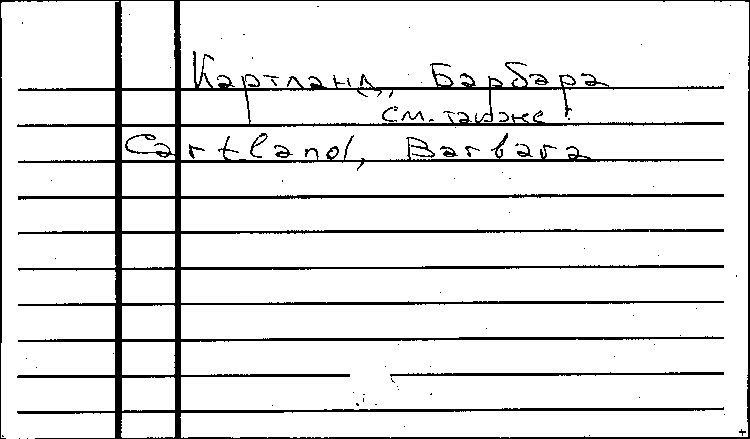 Картланд, Барбара
см. также:
Cartland, Barbara